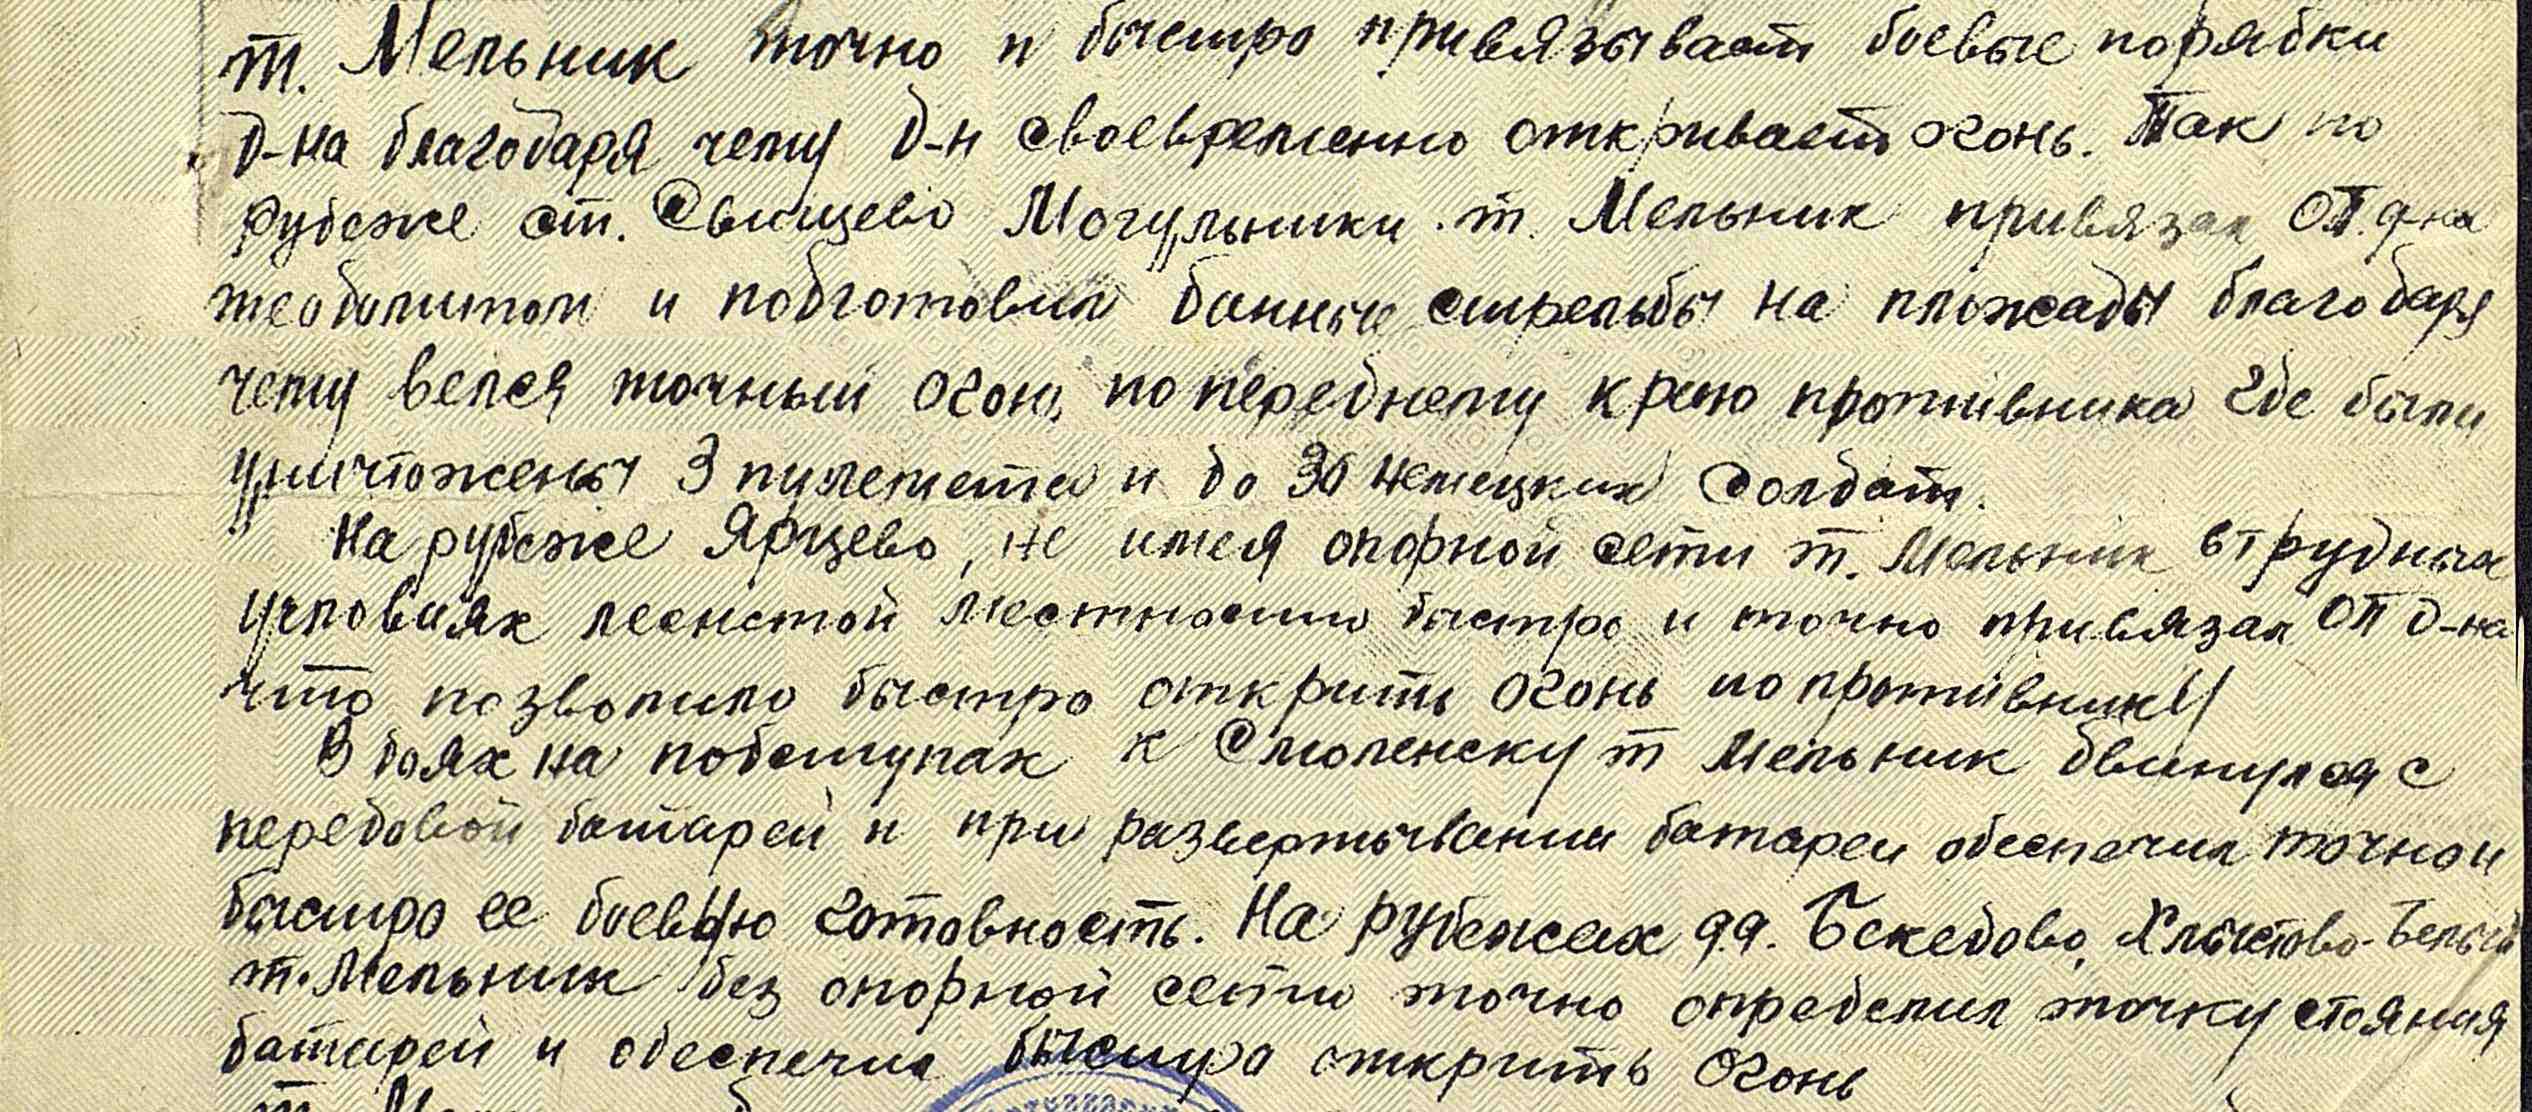 т. Мельник точно и быстро привязывает боевые порядки
д-на благодаря чему д-н своевременно открывает огонь. Так по
рубеже ст. Свищево Могульники т. Мельник привязал ОП д-на
теодолитом и подготовил данные стрельбы на площады благодаря
чему велся точный огонь по переднему краю противника где были
уничтожены 3 пулемета и до 30 немецких солдат.
На рубеже Ярцево, не имея опорной сети т. Мельник в трудных
условиях лесистой местности быстро и точно привязал ОП д-на
что позволило быстро открить огонь по противнику
В боях на подступах к Смоленску т Мельник двинулся с
передовой батареи и при развертывании батареи обеспечил точно и
быстро ее боевую готовность. На рубежах д.д. Бекедово, Хлыстово-Белый
т. Мельник без опорной сети точно определил точку стояния
батареи и обеспечил быстро открить огонь